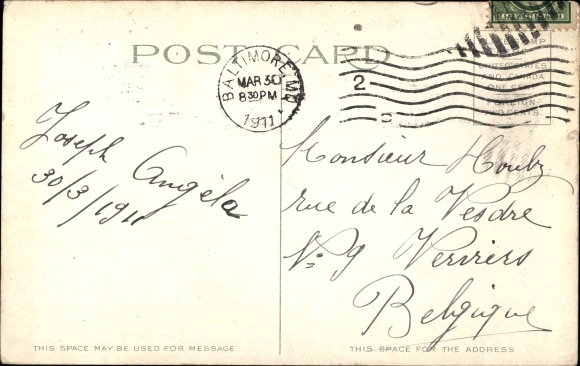 POST CARD
BALTIMORE, MD.
MAR 30
8 30 PM
1911
2
UNITED STATES
AND CANADA
ONE CENT
FOREIGN
TWO CENTS
Joseph Angéla
30/3/1911
Monsieur Houby
rue de la Vesdre
No 9 Verviers
Belgique
THIS SPACE MAY BE USED FOR MESSAGE
THIS SPACE FOR THE ADDRESS